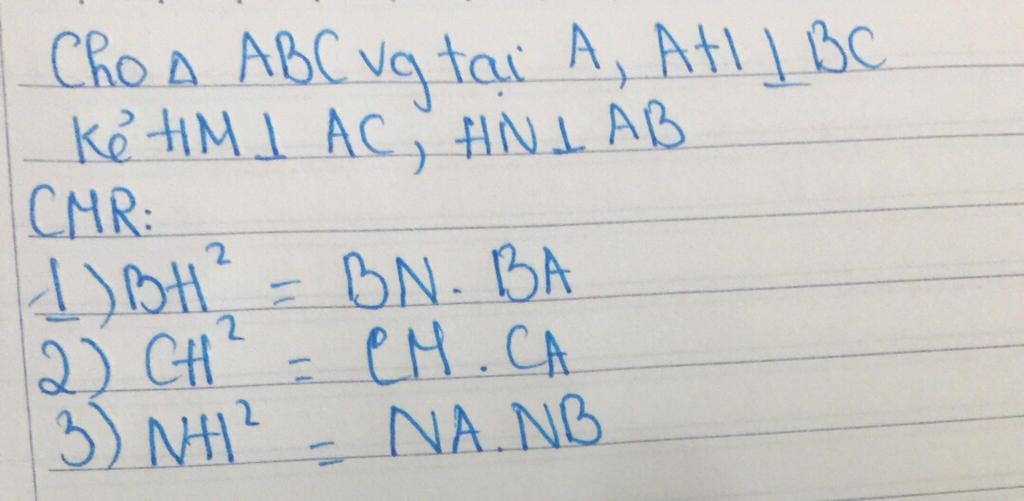 Cho Δ ABC vg tại A, AH ⊥ BC
Kẻ HM ⊥ AC, HN ⊥ AB
CMR:
1) BH² = BN. BA
2) CH² = CM. CA
3) NH² = NA. NB